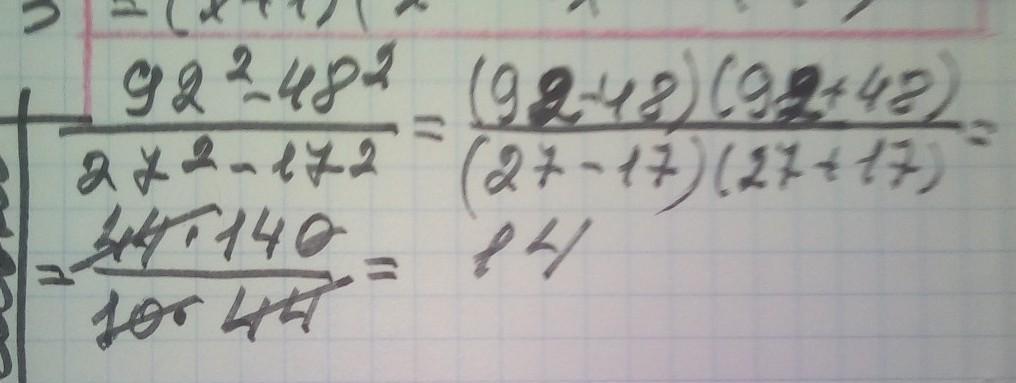 = (x+1)(x
92² - 48² / 27² - 17² = (92-48)(92+48) / (27-17)(27+17) =
= 44·140 / 10·44 = 14